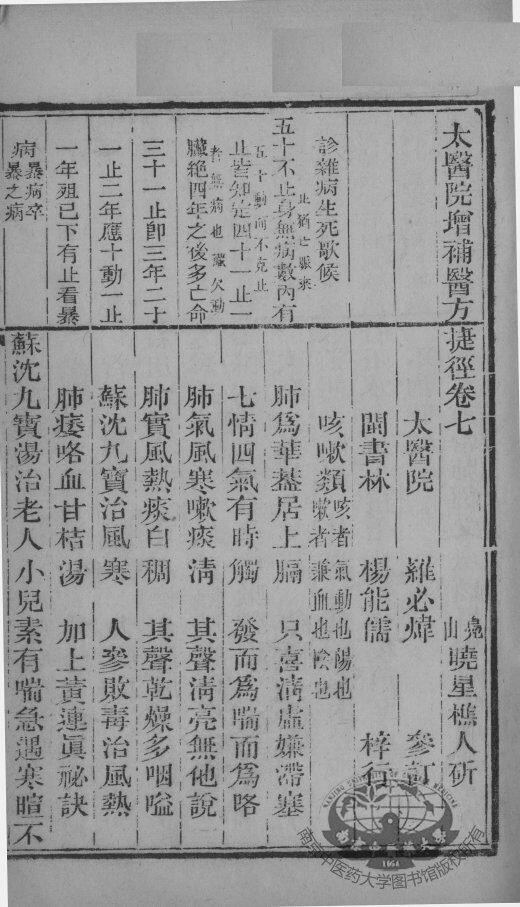 太醫院增補醫方捷徑卷七
太醫院 羅必煒 參訂
閩書林 楊能儒 梓行
曉星樵人斫
診雜病生死歌候
五十不止身無病數內有
止猶亡脈來
五十動而不克止
止皆知定四十一止一
者無病也臟欠動
臟絕四年之後多亡命
三十一止卽三年二十
一止二年應十動一止
一年殂已下有止看暴
病暴病卒
暴之病
咳嗽類
咳者氣動也陽也
嗽者兼血也陰也
肺爲華蓋居上膈 只喜清虛嫌滯塞
七情四氣有時觸 發而爲喘而爲咯
肺氣風寒嗽痰清 其聲清亮無他說
肺實風熱痰白稠 其聲乾燥多咽嗌
蘇沈九寶治風寒 人參敗毒治風熱
肺痿咯血甘桔湯 加上黃連眞祕訣
蘇沈九寶湯治老人小兒素有喘急遇寒暄不
南京中医药大学图书馆版权所有
1954